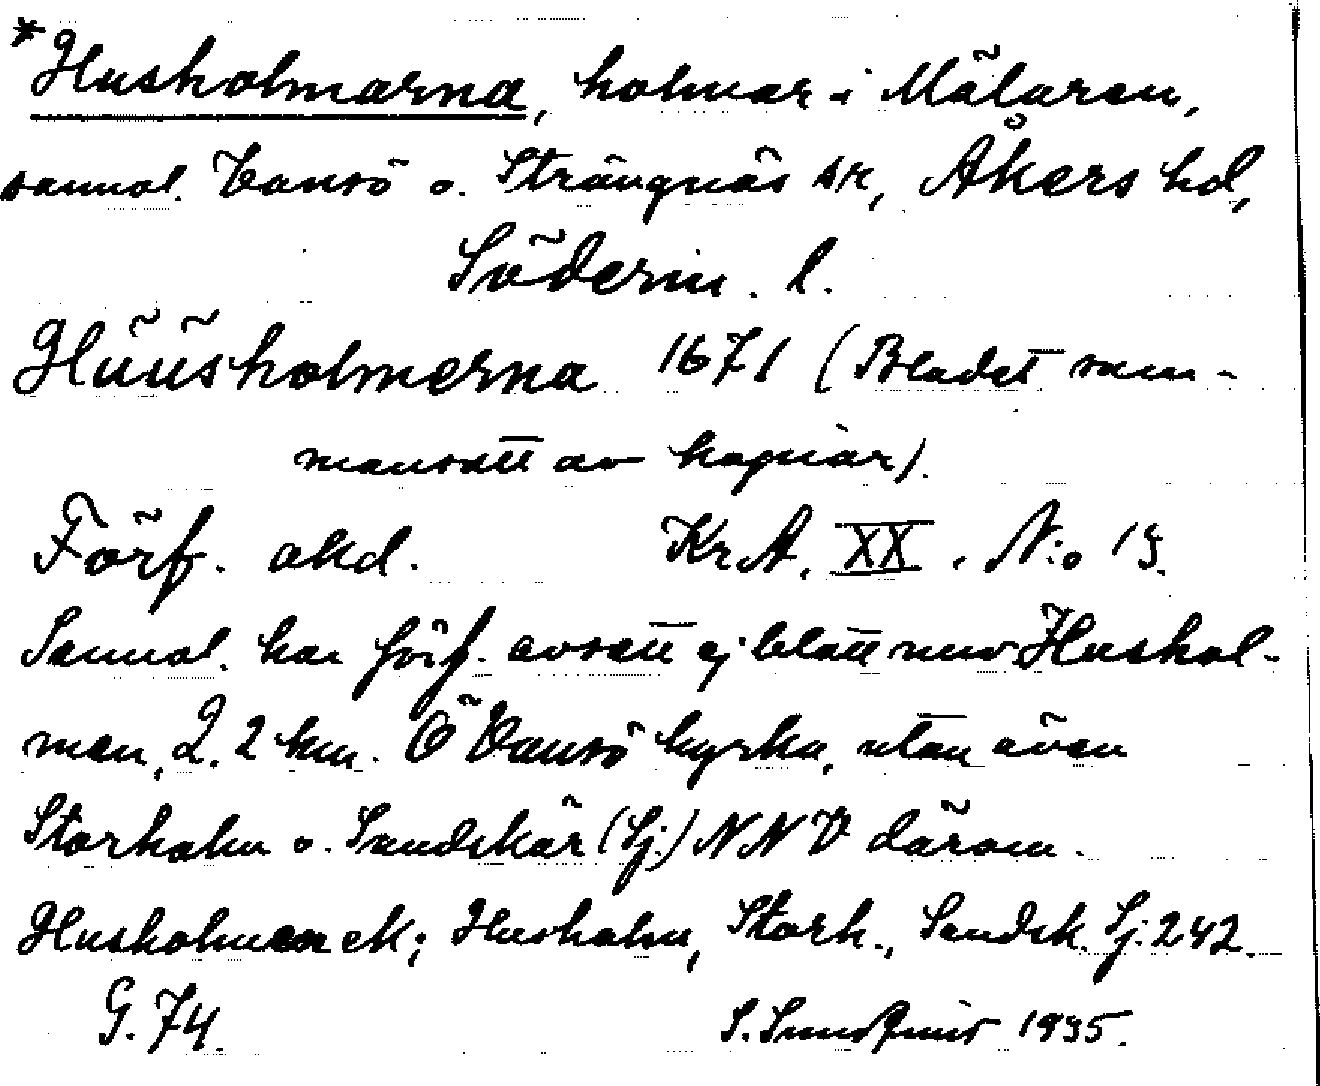 *Husholmarna, holmar i Mälaren,
sannol. Vansö o. Strängnäs sn, Åkers hd,
Söderm. l.
Hüüsholmerna 1671 (Bladet sam-
mansatt av kopior).
Förf. okd. KrA. XX. N:o 19.
Sannol. har förf. avsett ej blott nuv. Hushol-
men, 2.2 km. Ö Vansö kyrka, utan även
Storholm o. Sandskär (Sj.) NNV därom.
Husholmen ek; Husholm, Stork., Sandsk. Sj. 242.
G. 74. 1935.